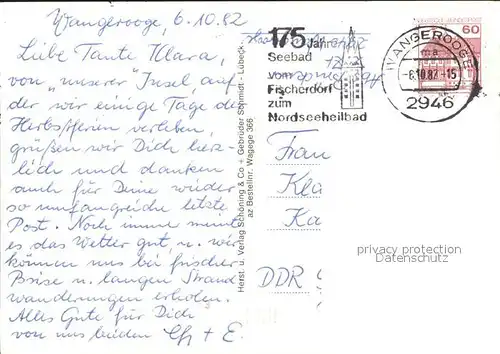 Wangerooge, 6.10.82
Liebe Tante Klara,
von „unserer" Insel, auf
der wir einige Tage der
Herbstferien verleben,
grüßen wir Dich herz-
lich und danken
auch für Deine wieder
so umfangreiche letzte
Post. Noch immer meint
es das Wetter gut, u. wir
können uns bei frischer
Brise u. langen Strand
wanderungen erholen.
Alles Gute für Dich
von uns beiden + E.
Herst. u. Verlag Schöning & Co + Gebrüder Schmidt - Lübeck
az Bestellnr. Wagege 366
175 Jahre
Seebad
vom
Fischerdorf
zum
Nordseeheilbad
WANGEROOGE
ma
-6.10.82-15
2946
60
Frau
Kla
Ka
DDR
privacy protection
Datenschutz